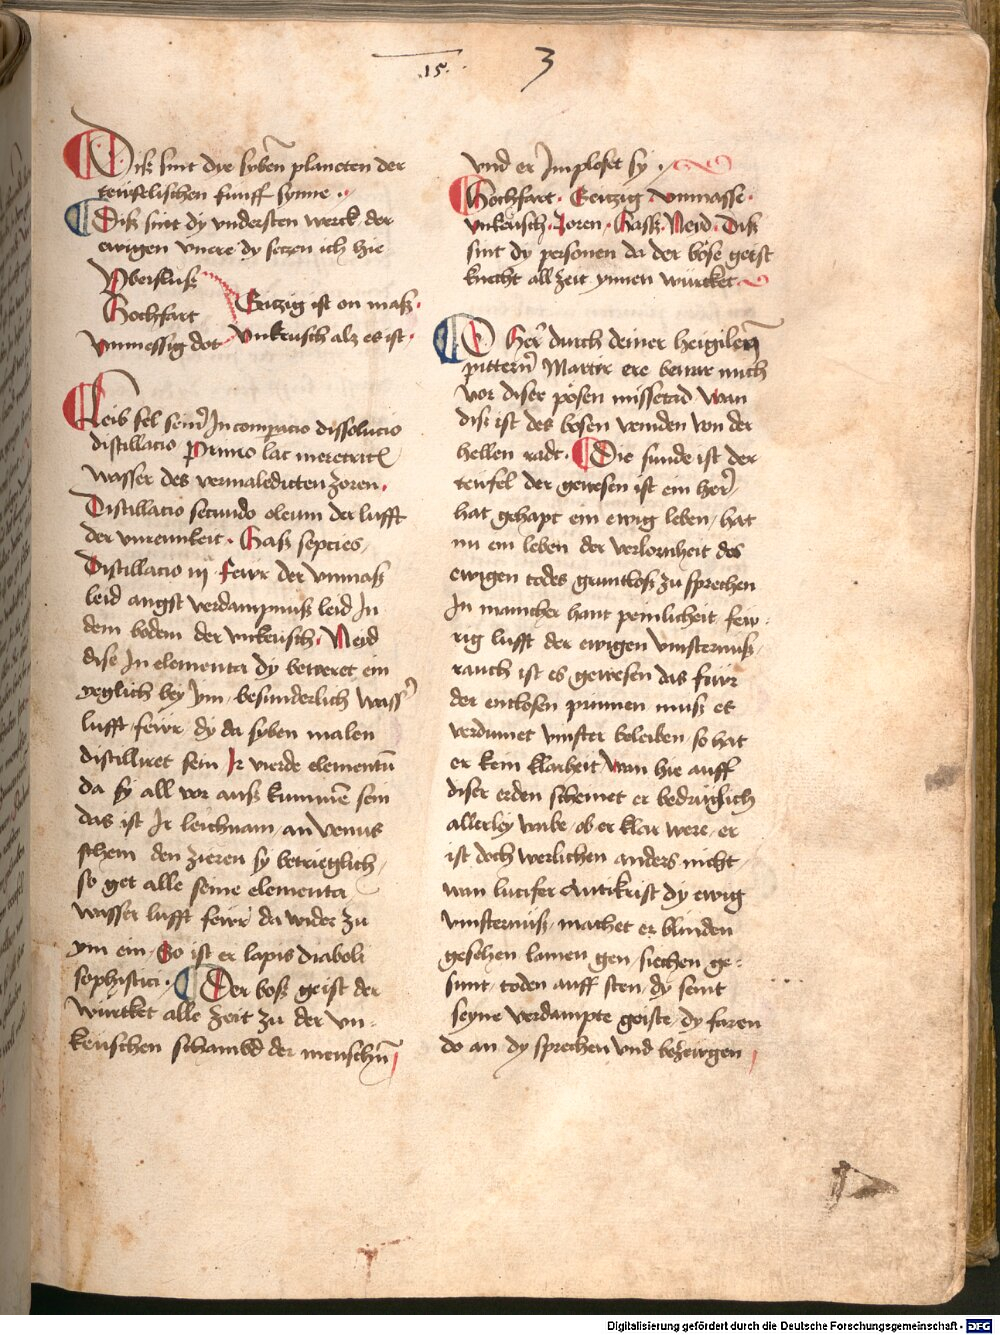 .15. 3
Diß sint dye syben planeten der
teufelischen funff synne
Diß sint dy vndersten werck der
ewigen vnere dy setzen ich hie
Vberfluß
Hochfart Geitzig ist on maß
vnmessig dot vnkeusch alz es ist
Leib sel sein In compacio dissolucio
distillacio Primo lac meretricis
wasser des vermaledicten zoren
Distillacio secundo oleum der lufft
der vnreinikeit Haß septies
Distillacio iij Feivr der vnmaß
leid angst verdampnuß leid In
dem bodem der vnkeusch Neid
dise In elementa dy betteret ein
yeglich bey ym besunderlich wasser
lufft feivr dy da syben malen
distilliret sein Ir vierde elementum
da sy all vor auß kummen sein
das ist Ir leichnam an Venus
schein den zieren sy betrieglich
so get alle seine elementa
wasser lufft feivr da wider zu
ym ein So ist er lapis diaboli
sophistici Der boß geist der
würcket alle zeit zu der vn-
keuschen schambd der menschen
vnd er Imploset sy
Hochfart Geitzig vnmasse
vnkeusch Zoren Hassz Neid Diß
sint dy personen da der böse geist
knecht all zeit ynnen würcket
O Her durch deiner heiligen
pittern Martir ere bewar mich
vor diser pösen missetad wan
diß ist des bosen veinden von der
hellen radt Die sunde ist der
teufel der gewesen ist ein her
hat gehapt ein ewig leben hat
nu ein leben der verlornheit des
ewigen todes gruntloß zu sprechen
In mancher hant peinlicheit feiv-
rig lufft der ewigen vinsternuß
rauch ist es gewesen das fuir
der entlosen prinnen muß er
verdumet vinster beleiben so hat
er kein klarheit wan hie auff
diser erden scheinet er bedrüglich
allerley varbe ob er klar were er
ist doch werlichen anders nicht
wan lucifer Antikrist dy ewig
vinsternuß machet er blinden
gesehen lamen gen siechen ge-
sunt toden auff sten dy seint
seyne verdampte geiste dy faren
do an dy sprechen vnd bezeügen
Digitalisierung gefördert durch die Deutsche Forschungsgemeinschaft - DFG